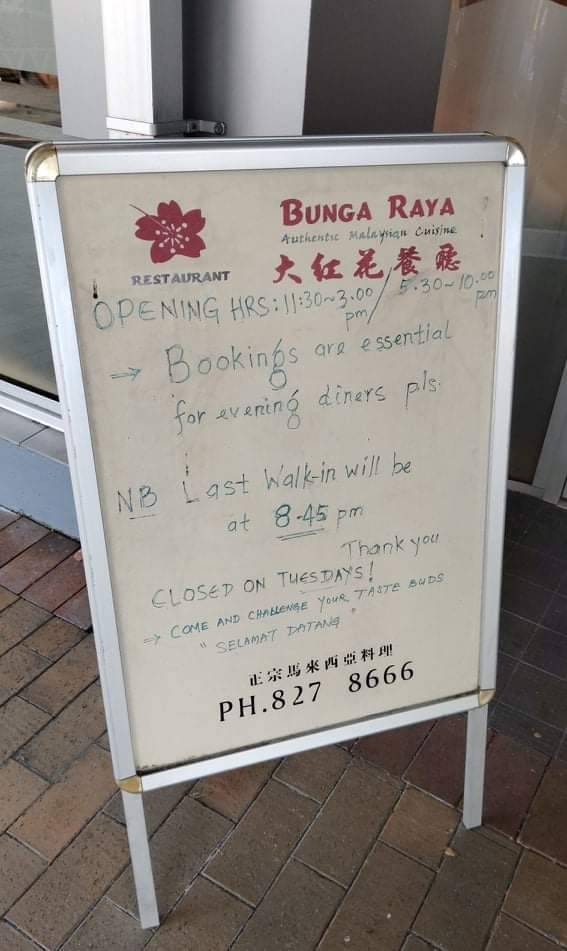 BUNGA RAYA
Authentic Malaysian Cuisine
RESTAURANT
大红花餐廳
OPENING HRS: 11:30~3.00 pm / 5.30~10.00 pm
→ Bookings are essential
for evening diners pls.
NB Last Walk-in will be
at 8.45 pm
Thank you
CLOSED ON TUESDAYS!
→ COME AND CHALLENGE YOUR TASTE BUDS
"SELAMAT DATANG"
正宗馬來西亞料理
PH.827 8666